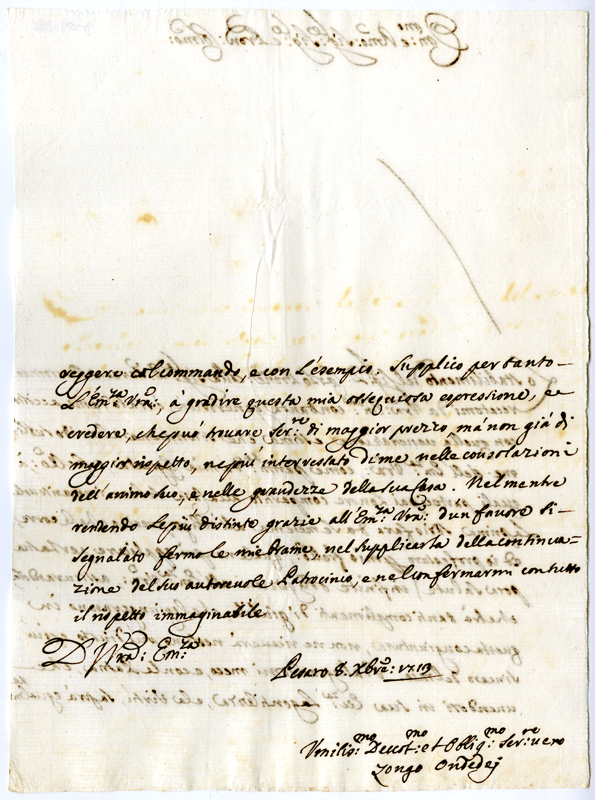 reggere col commando, e con L'esempio. Supplico per tanto
L'Em:za Vra:, à gradire questa mia ossequiosa espressione, e
credere, che può trouare ser:re di maggior prezzo, mà non già di
maggior rispetto, ne più interessato di me nelle consolazioni
dell'animo suo, e nelle grandezze della sua Casa. Nel mentre
rendendo le più distinte grazie all'Em:za Vra: d'un fauore si-
segnalato fermo le mie brame, nel supplicarla della continua=
zione del suo autoreuole Patocinio, e nel confermarmi con tutto
il rispetto immaginabile
D. Vra: Em:za
Pesaro 8. Xbre: 1713
Vmilis:mo Deuot:mo et Oblig:mo Ser:re vero
Zongo Ondedej